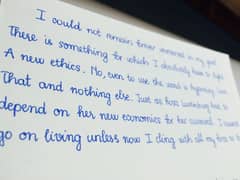 I could not remain forever immersed in my grief
There is something for which I absolutely have to fight
A new ethics. No, even to use the word is beginning
That and nothing else. Just as Rosa Luxemburg had to
depend on her new economics for her survival. I cannot
go on living unless now I cling with all my force to the